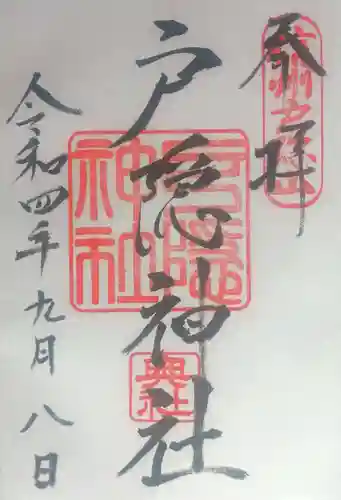 奉拝
戸隠神社
令和四年九月八日
戸隠神社
奥社